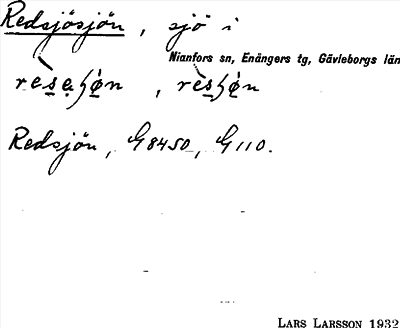 Redsjösjön, sjö i
Nianfors sn, Enångers tg, Gävleborgs län
Redsjön, G8450, G110.
LARS LARSSON 1932